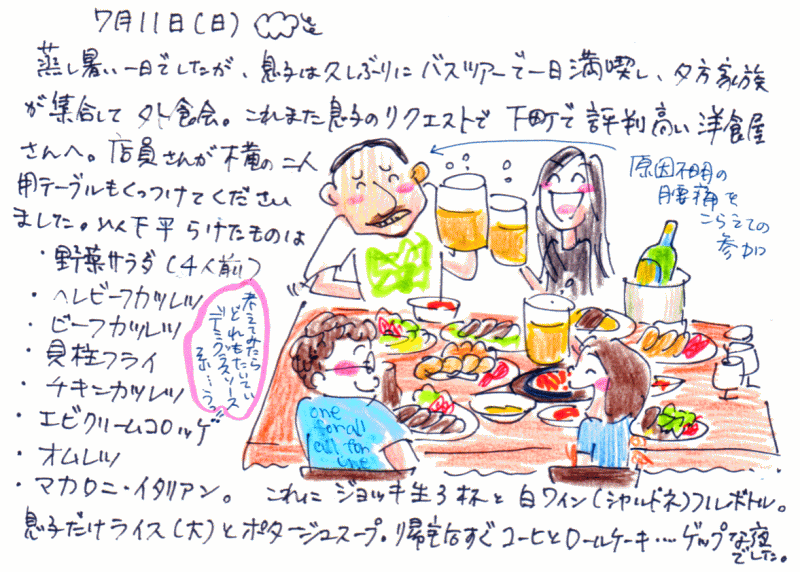 7月11日(日)
蒸し暑い一日でしたが、息子は久しぶりにバスツアーで一日満喫し、夕方家族
が集合して外食会。これまた息子のリクエストで下町で評判高い洋食屋
さんへ。店員さんが横の二人
用テーブルもくっつけてください
ました。以下平らげたものは
・野菜サラダ(4人前)
・ヘレビーフカツレツ
・ビーフカツレツ
・貝柱フライ
・チキンカツレツ
・エビクリームコロッケ
・オムレツ
・マカロニ・イタリアン。これにジョッキ生3杯と白ワイン(シャルドネ)フルボトル。
息子だけライス(大)とポタージュスープ。帰宅后すぐコーヒとロールケーキ…ゲップな夜
でした。
考えてみたら
どれもたいてい
デミグラスソース
系…う。
原因不明の
腰痛を
こらえての
参加
one
for all
all for
one